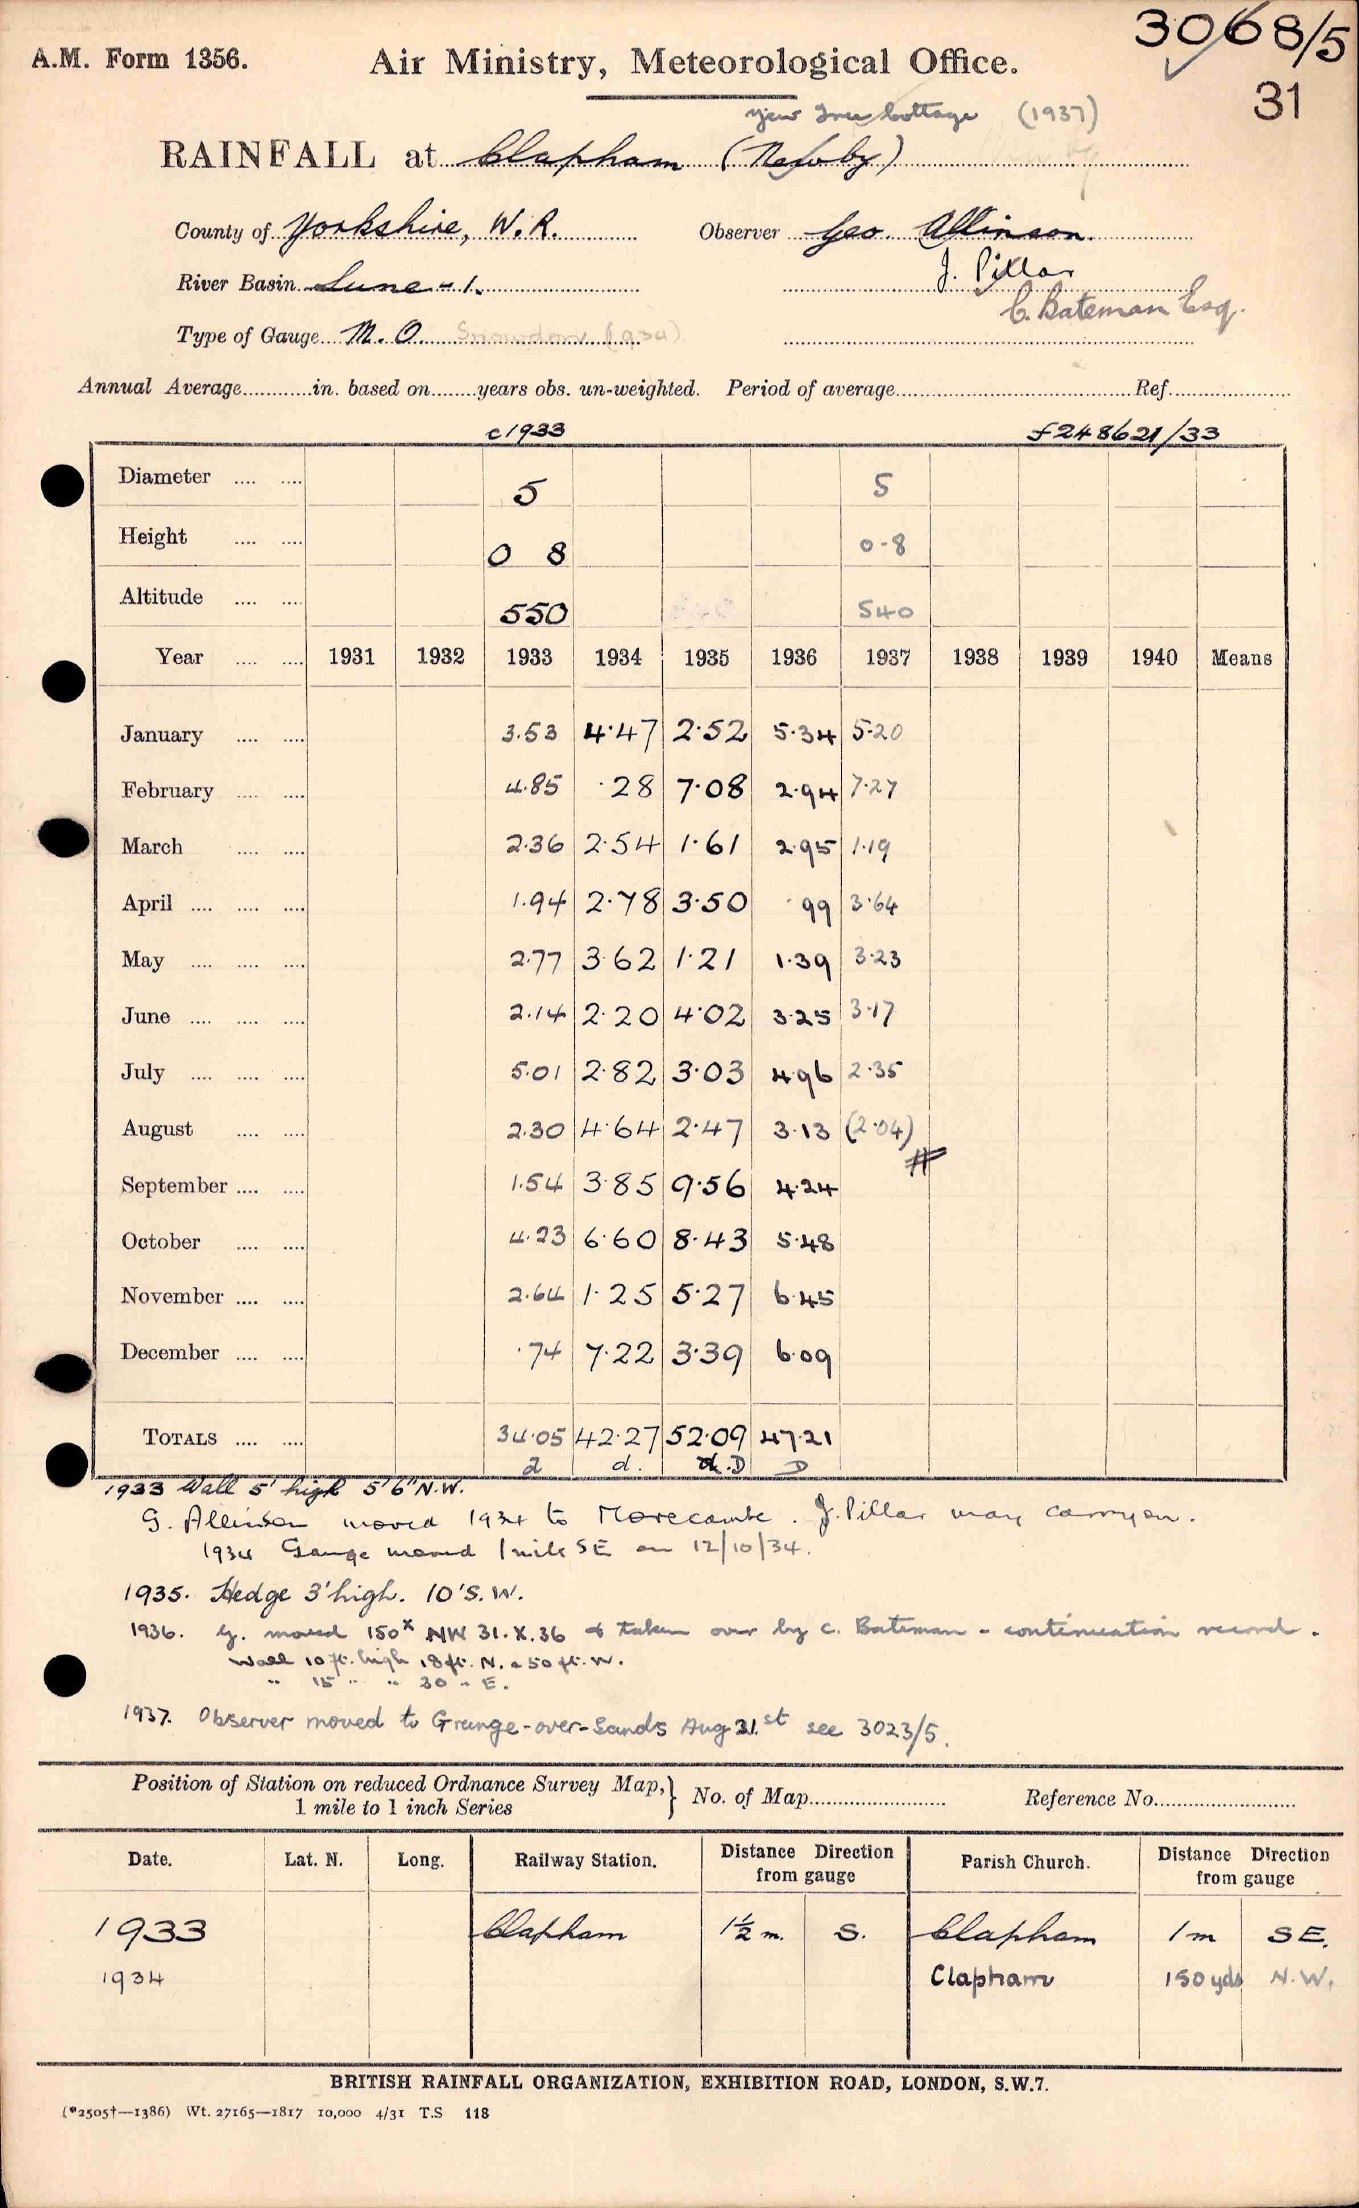 3068/5
A.M. Form 1356. Air Ministry, Meteorological Office.
31
Yew Tree Cottage (1937)
RAINFALL at Clapham (Newby)
County of Yorkshire, W.R. Observer Geo. Allinson.
River Basin Lune - 1. J. Pillar
C. Bateman Esq.
Type of Gauge M.O. Snowdon (1934)
Annual Average............in. based on........years obs. un-weighted. Period of average........................................Ref.....................
c1933 f248621/33
Diameter .... .... 5 5
Height .... .... 0 8 0-8
Altitude .... .... 550 540
Year .... .... 1931 1932 1933 1934 1935 1936 1937 1938 1939 1940 Means
January .... .... 3.53 4.47 2.52 5.34 5.20
February .... .... 4.85 .28 7.08 2.94 7.27
March .... .... 2.36 2.54 1.61 2.95 1.19
April .... .... .... 1.94 2.78 3.50 .99 3.64
May .... .... .... 2.77 3.62 1.21 1.39 3.23
June .... .... .... 2.14 2.20 4.02 3.25 3.17
July .... .... .... 5.01 2.82 3.03 4.96 2.35
August .... .... 2.30 4.64 2.47 3.13 (2.04)
September .... .... 1.54 3.85 9.56 4.24
October .... .... 4.23 6.60 8.43 5.48
November .... .... 2.64 1.25 5.27 6.45
December .... .... .74 7.22 3.39 6.09
TOTALS .... .... 34.05 42.27 52.09 47.21
d d. D D
1933 Wall 5' high 5'6" N.W.
G. Allinson moved 1934 to Morecambe. J. Pillar may carry on.
1934 Gauge moved 1 mile SE on 12/10/34.
1935. Hedge 3' high. 10' S.W.
1936. G. moved 150x NW 31.X.36 & taken over by C. Bateman - continuation record.
Wall 10 ft. high 18 ft. N. & 50 ft. W.
" 15 " " 30 " E.
1937. Observer moved to Grange-over-Sands Aug 31st see 3023/5.
Position of Station on reduced Ordnance Survey Map, 1 mile to 1 inch Series } No. of Map........................ Reference No.........................
Date. Lat. N. Long. Railway Station. Distance Direction from gauge Parish Church. Distance Direction from gauge
1933 Clapham 1½ m. S. Clapham 1 m SE.
1934 Clapham 150 yds N.W.
BRITISH RAINFALL ORGANIZATION, EXHIBITION ROAD, LONDON, S.W.7.
(*2505†—1386) Wt. 27165—1817 10,000 4/31 T.S 118